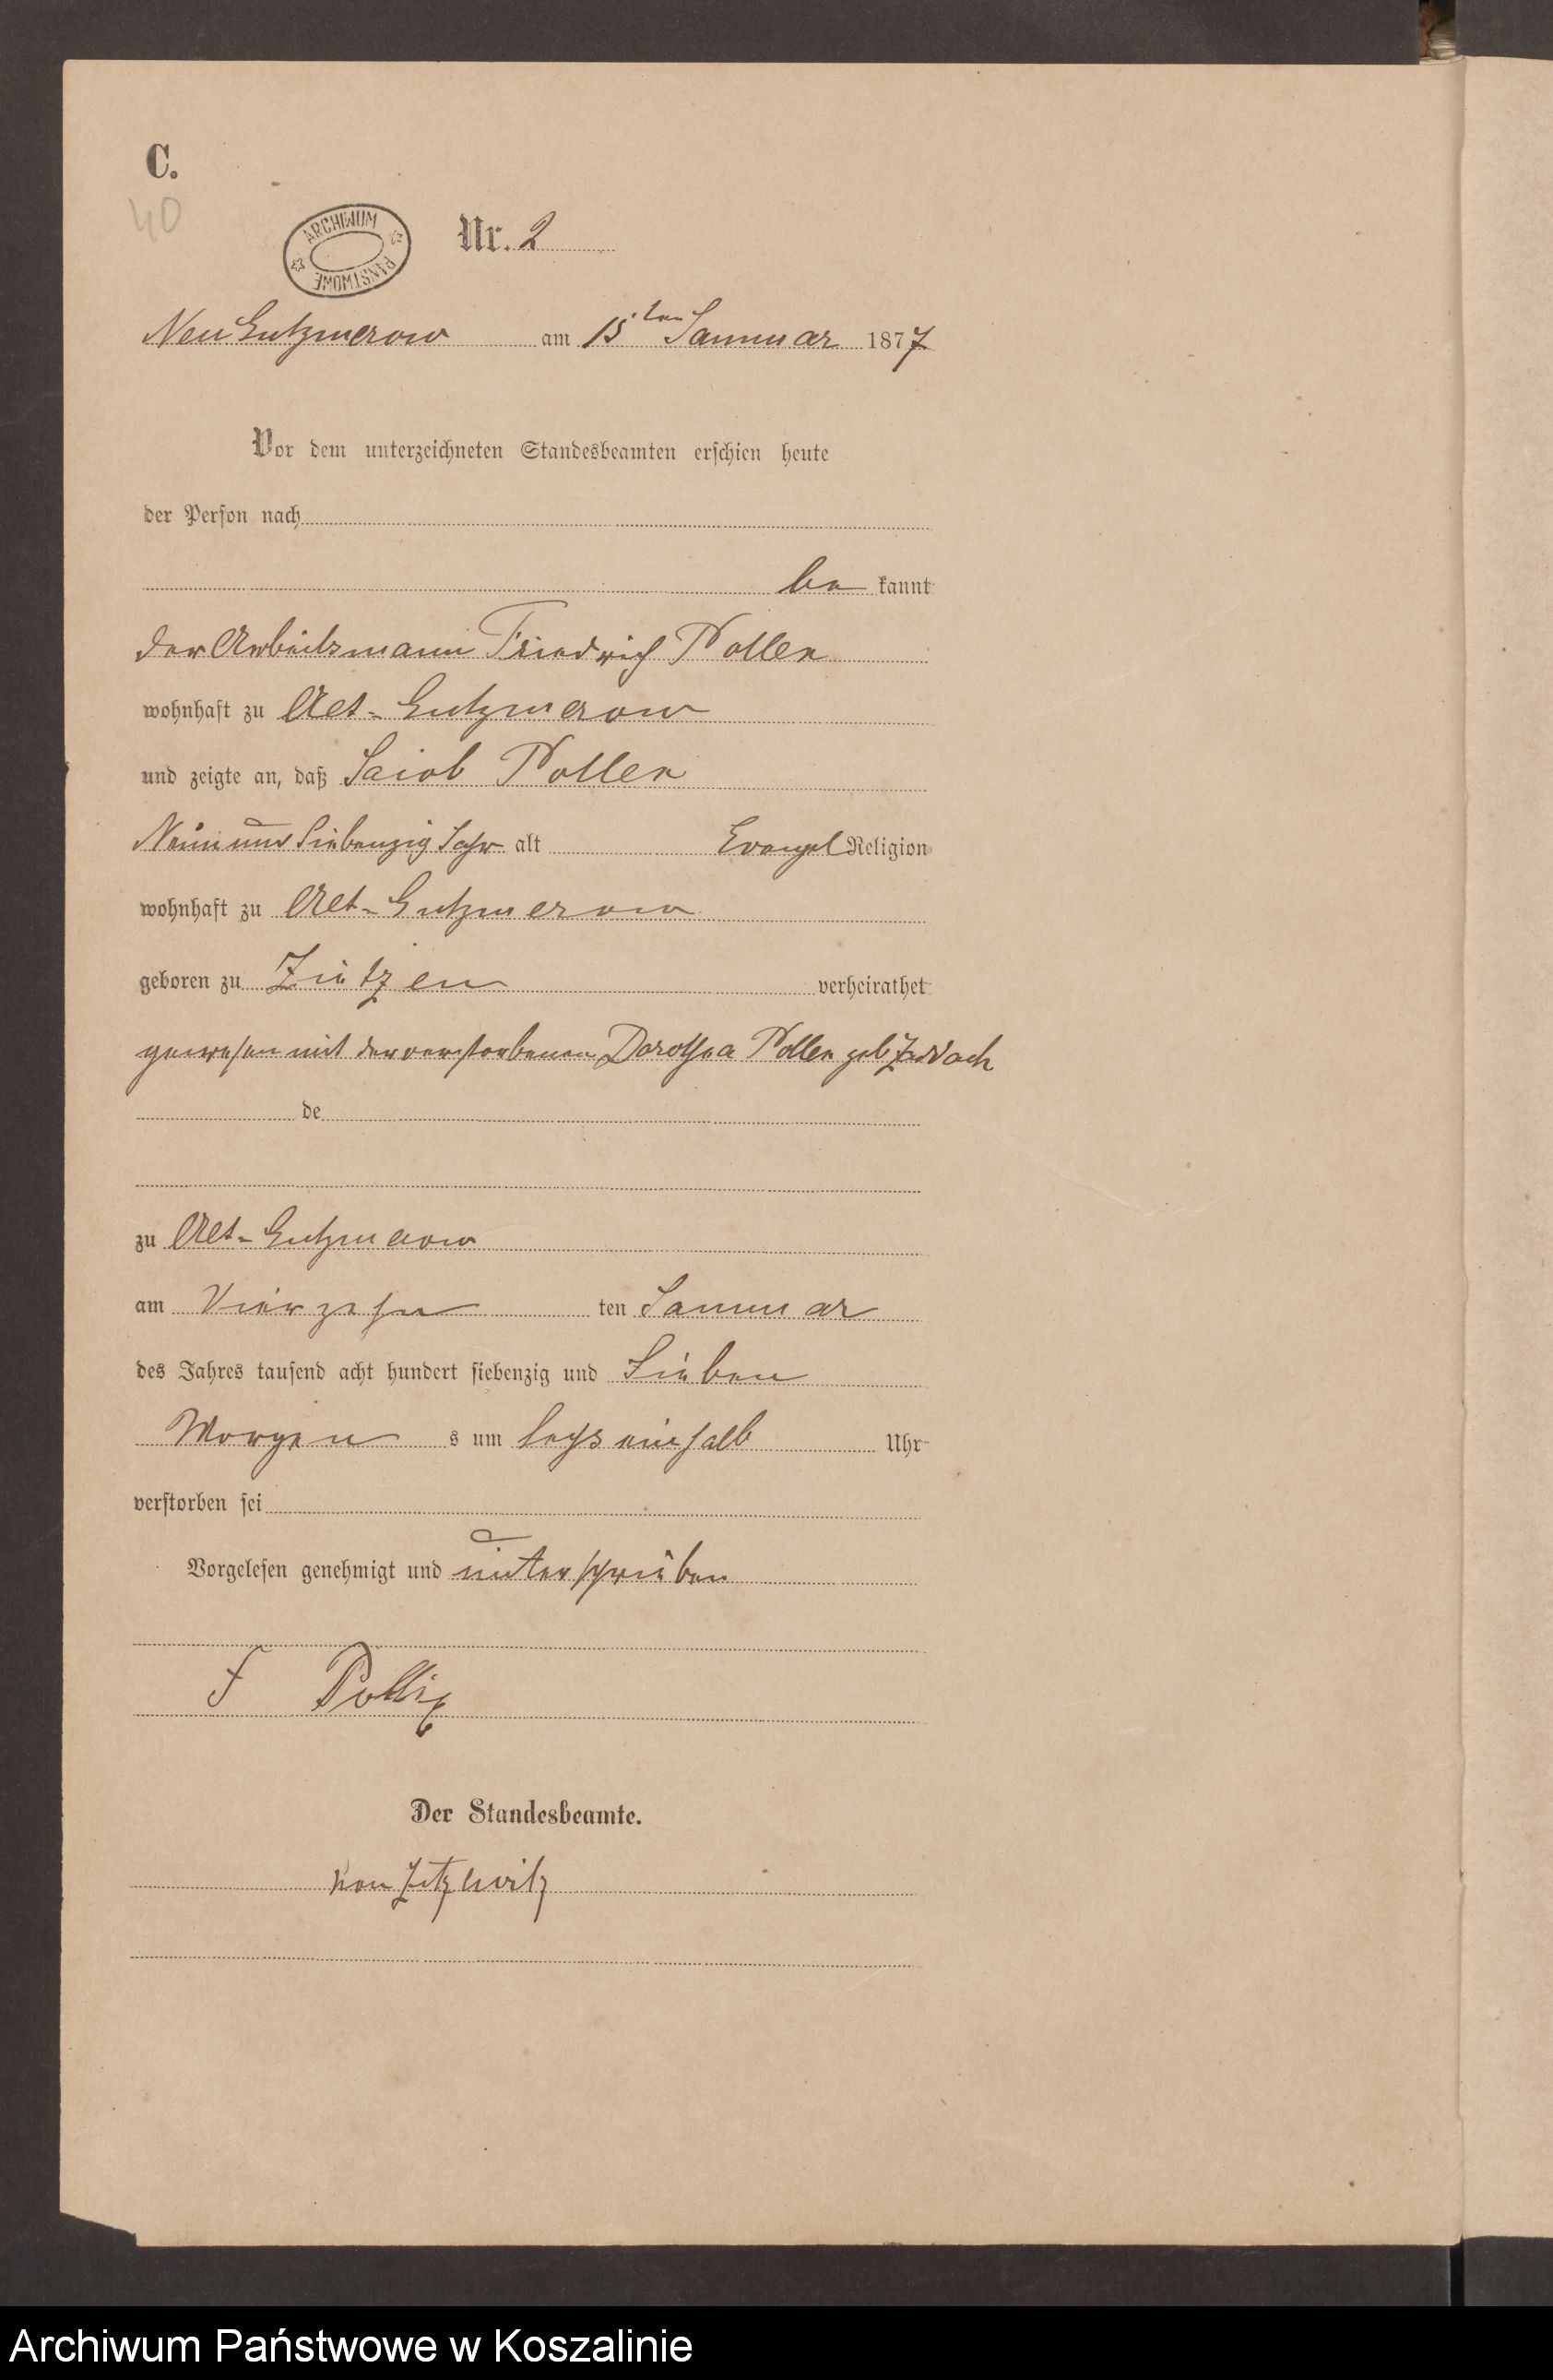 C.
40
ARCHIWUM PAŃSTWOWE
Nr. 2
Neu Gutzmerow am 15ten Januar 1877
Vor dem unterzeichneten Standesbeamten erschien heute
der Person nach
be kannt
der Arbeitsmann Friedrich Pollex
wohnhaft zu Alt-Gutzmerow
und zeigte an, daß Jacob Pollex
Neun und Siebenzig Jahr alt Evangel Religion
wohnhaft zu Alt-Gutzmerow
geboren zu Zietzen verheirathet
gewesen mit der verstorbenen Dorothea Pollex geb
de
zu Alt-Gutzmerow
am Vierzehn ten Januar
des Jahres tausend acht hundert siebenzig und Sieben
Morgen s um sechs einhalb Uhr
verstorben sei
Vorgelesen genehmigt und unterschrieben
F Pollex
Der Standesbeamte.
von Zitzewitz
Archiwum Państwowe w Koszalinie